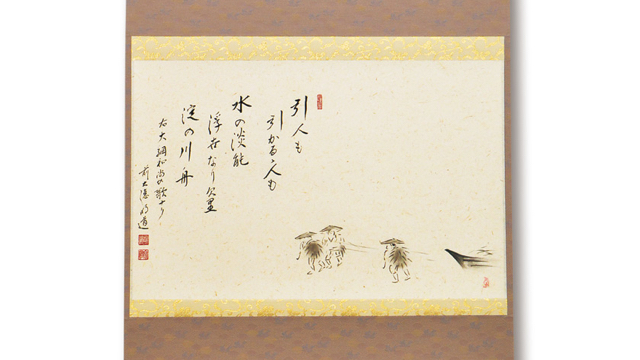 引人も
引かるゝ人も
水の淡能
浮世なり
淀の川舟
右大綱和尚の歌なり
前大徳